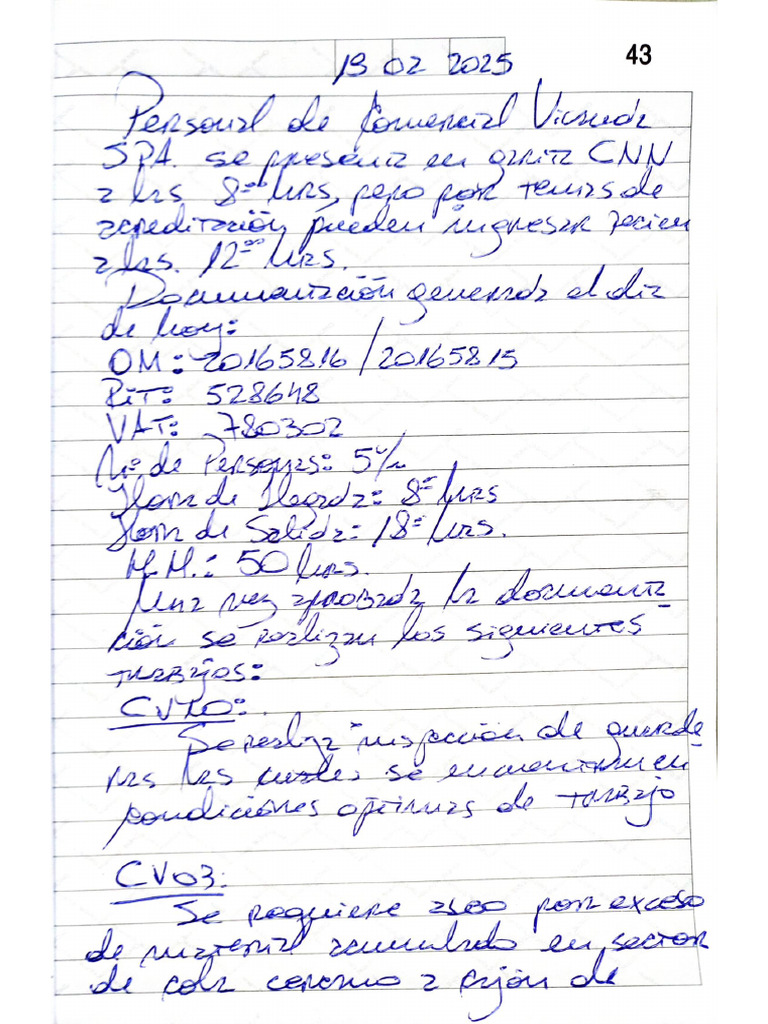 43
19 02 2025
Personal de Comercial Vicuada
SPA. se presenta en garita CNN
a las 8:00 hrs, pero por temas de
acreditación pueden ingresar recien
a las. 12:00 hrs.
Documentación generada el dia
de hoy:
OM: 20165816 / 20165815
PiT: 528648
VAT: 780302
N: de Personas: 5
Hora de llegada: 8: hrs
Hora de Salida: 18: hrs.
H.H.: 50 hrs.
Una vez aprobada la documenta
ción se realizan los siguientes
trabajos:
CV10:
Se realiza inspección de guarde
ras las cuales se encuentran en
condiciones optimas de trabajo
CV03:
Se requiere aseo por exceso
de material acumulado en sector
de cola cercano a cajón de